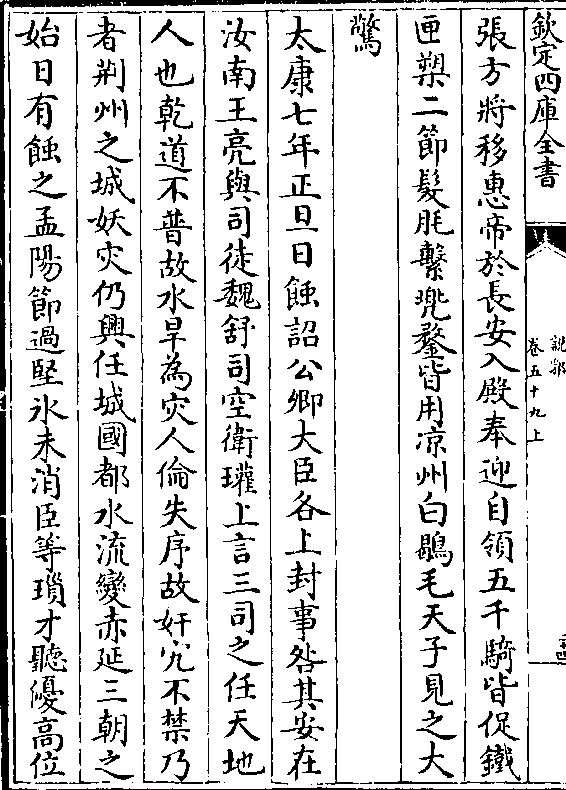 欽定四庫全書
說郛
卷五十九上
張方將移惠帝於長安入殿奉迎自領五千騎皆促鐵
匣槊二節髮毦繫兜鍪皆用凉州白鶡毛天子見之大
驚
太康七年正旦日蝕詔公卿大臣各上封事咎其安在
汝南王亮與司徒魏舒司空衛瓘上言三司之任天地
人也乾道不普故水旱為灾人倫失序故奸宄不禁乃
者荆州之城妖灾仍興任城國都水流變赤延三朝之
始日有蝕之孟陽節過堅氷未消臣等瑣才聽優高位